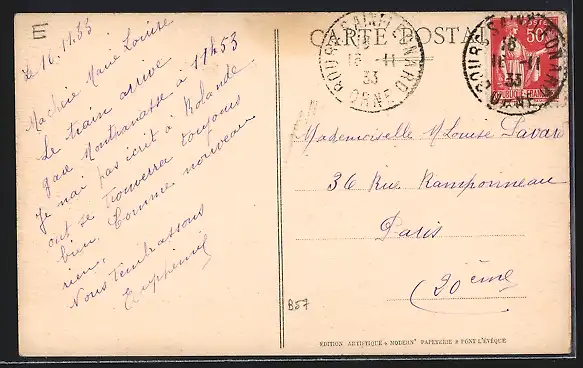 E
CARTE POSTALE
le 16.11.33
Ma chère Marie Louise
Le train arrive
gare Montparnasse à 11h53
Je n'ai pas écrit à Rolande
ont se trouvera toujours
bien. Comme nouveau
rien.
Nous t'embrassons
Euphémie
BOURG-SAINT-LEONARD
18
16 -11
33
ORNE
50c
POSTES
18
16 -11
33
Mademoiselle M Louise Savaro
36 Rue Ramponneau
Paris
20 ème
B57
EDITION ARTISTIQUE & MODERNE PAPETERIE à PONT L'ÉVÊQUE